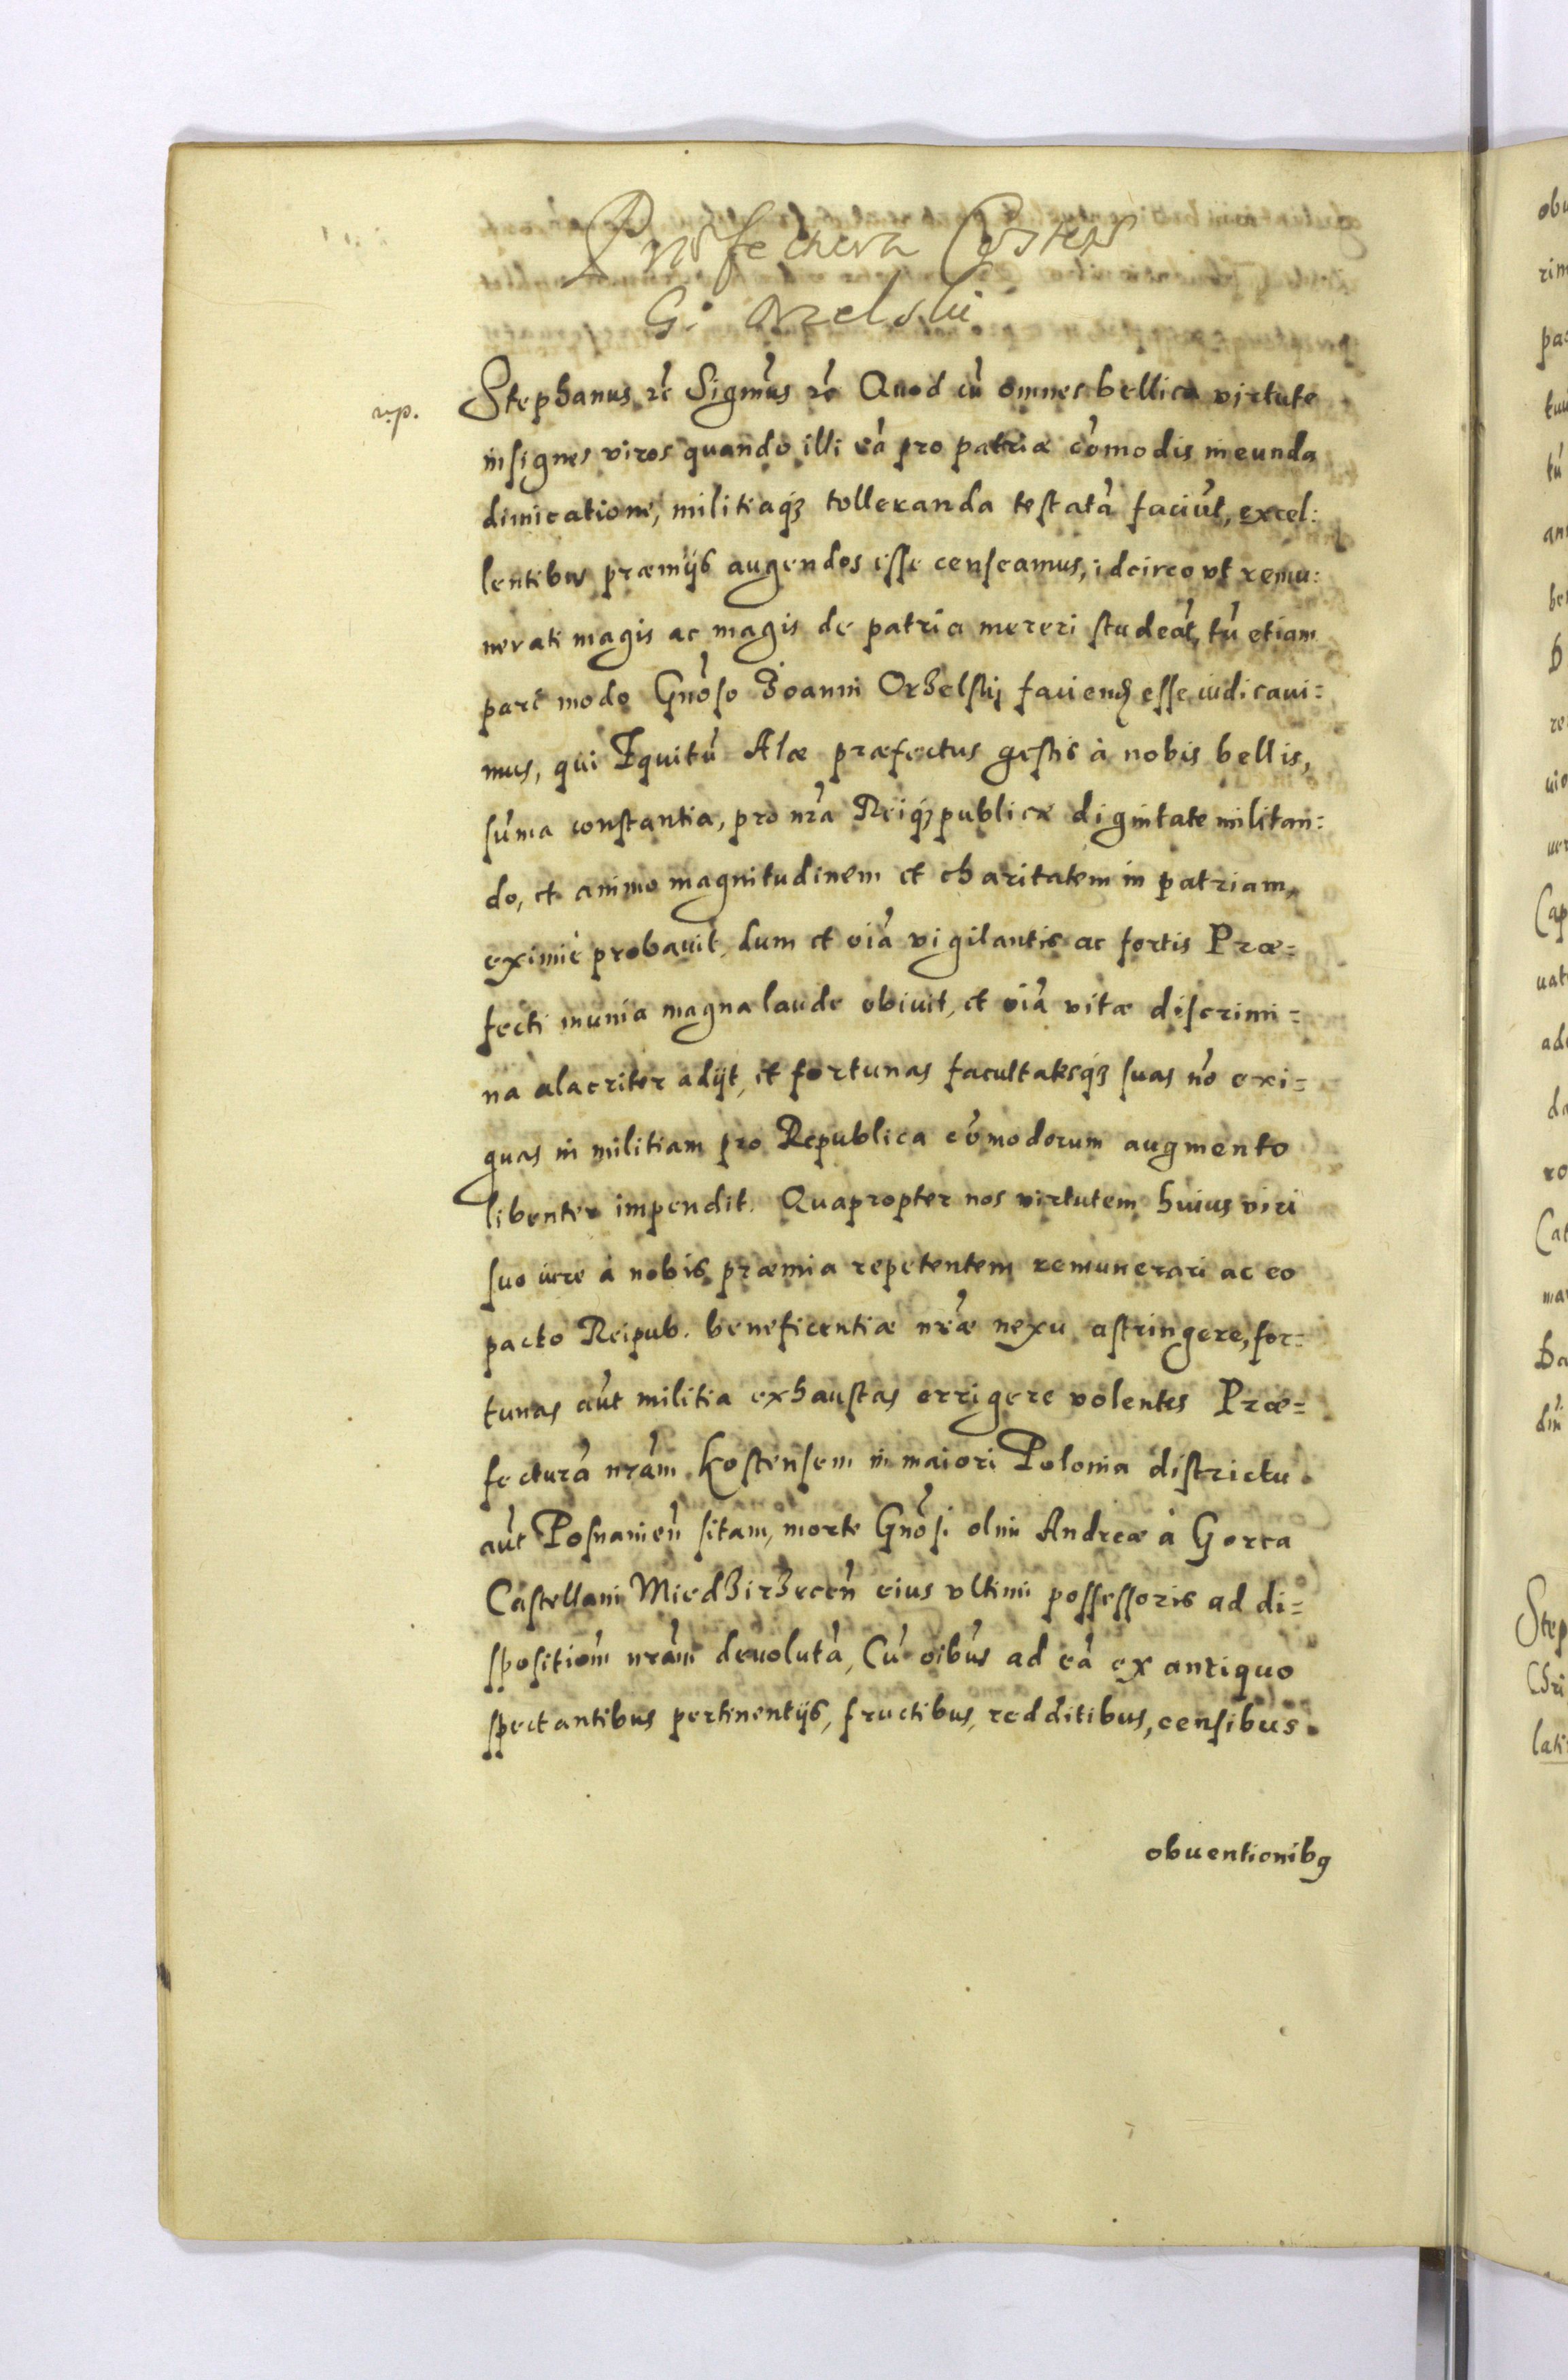 Præfectura Costen
G. Orzelski
np.
Stephanus rc̃ Signm̃us rc̃ Quod cũ omnes bellica virtute
insignes viros quando illi eã pro patriæ cõmodis ineunda
dimicatione, militiaq́; tolleranda testatã faciũt, excel:
lentibus præmijs augendos esse censeamus, idcirco vt remu:
nerati magis ac magis de patria mereri studeãt, tũ etiam
pari modo Gnõso Joanni Orzelskij faciend esse iudicaui=
mus, qui Equitũ Alæ præfectus gestis à nobis bellis,
sũma constantia, pro nrã Reiq́; publicæ dignitate militan:
do, et animo magnitudinem et charitatem in patriam,
eximiè probauit, dum et oiã vigilantis ac fortis Præ=
fecti munia magna laude obiuit, et oiã vitæ discrimi=
na alacriter adijt, et fortunas facultatesq́; suas nõ exi=
guas in militiam pro Republica cõmodorum augmento
libenter impendit. Quapropter nos virtutem huius viri
suo iure à nobis præmia repetentem remunerari ac eo
pacto Reipub. beneficentiæ nræ̃ nexu astringere, for=
tunas aũt militia exhaustas errigere volentes Præ=
fecturã nrãm Kostensem in maiori Polonia districtu
aũt Posnanień sitam, morte Gnõsi olim Andreæ à Gorca
Castellani Miedzirzeceń eius vltimi possessoris ad di=
spositiom̃ nrãm deuolutã, Cũ oibũs ad eã ex antiquo
spectantibus pertinentijs, fructibus, redditibus, censibus
obuentionibg
obu
rim
pac
tuu
tũ
Cap
uat
ade
da
ro
Cat
mar
diń
Step
Chri
lati